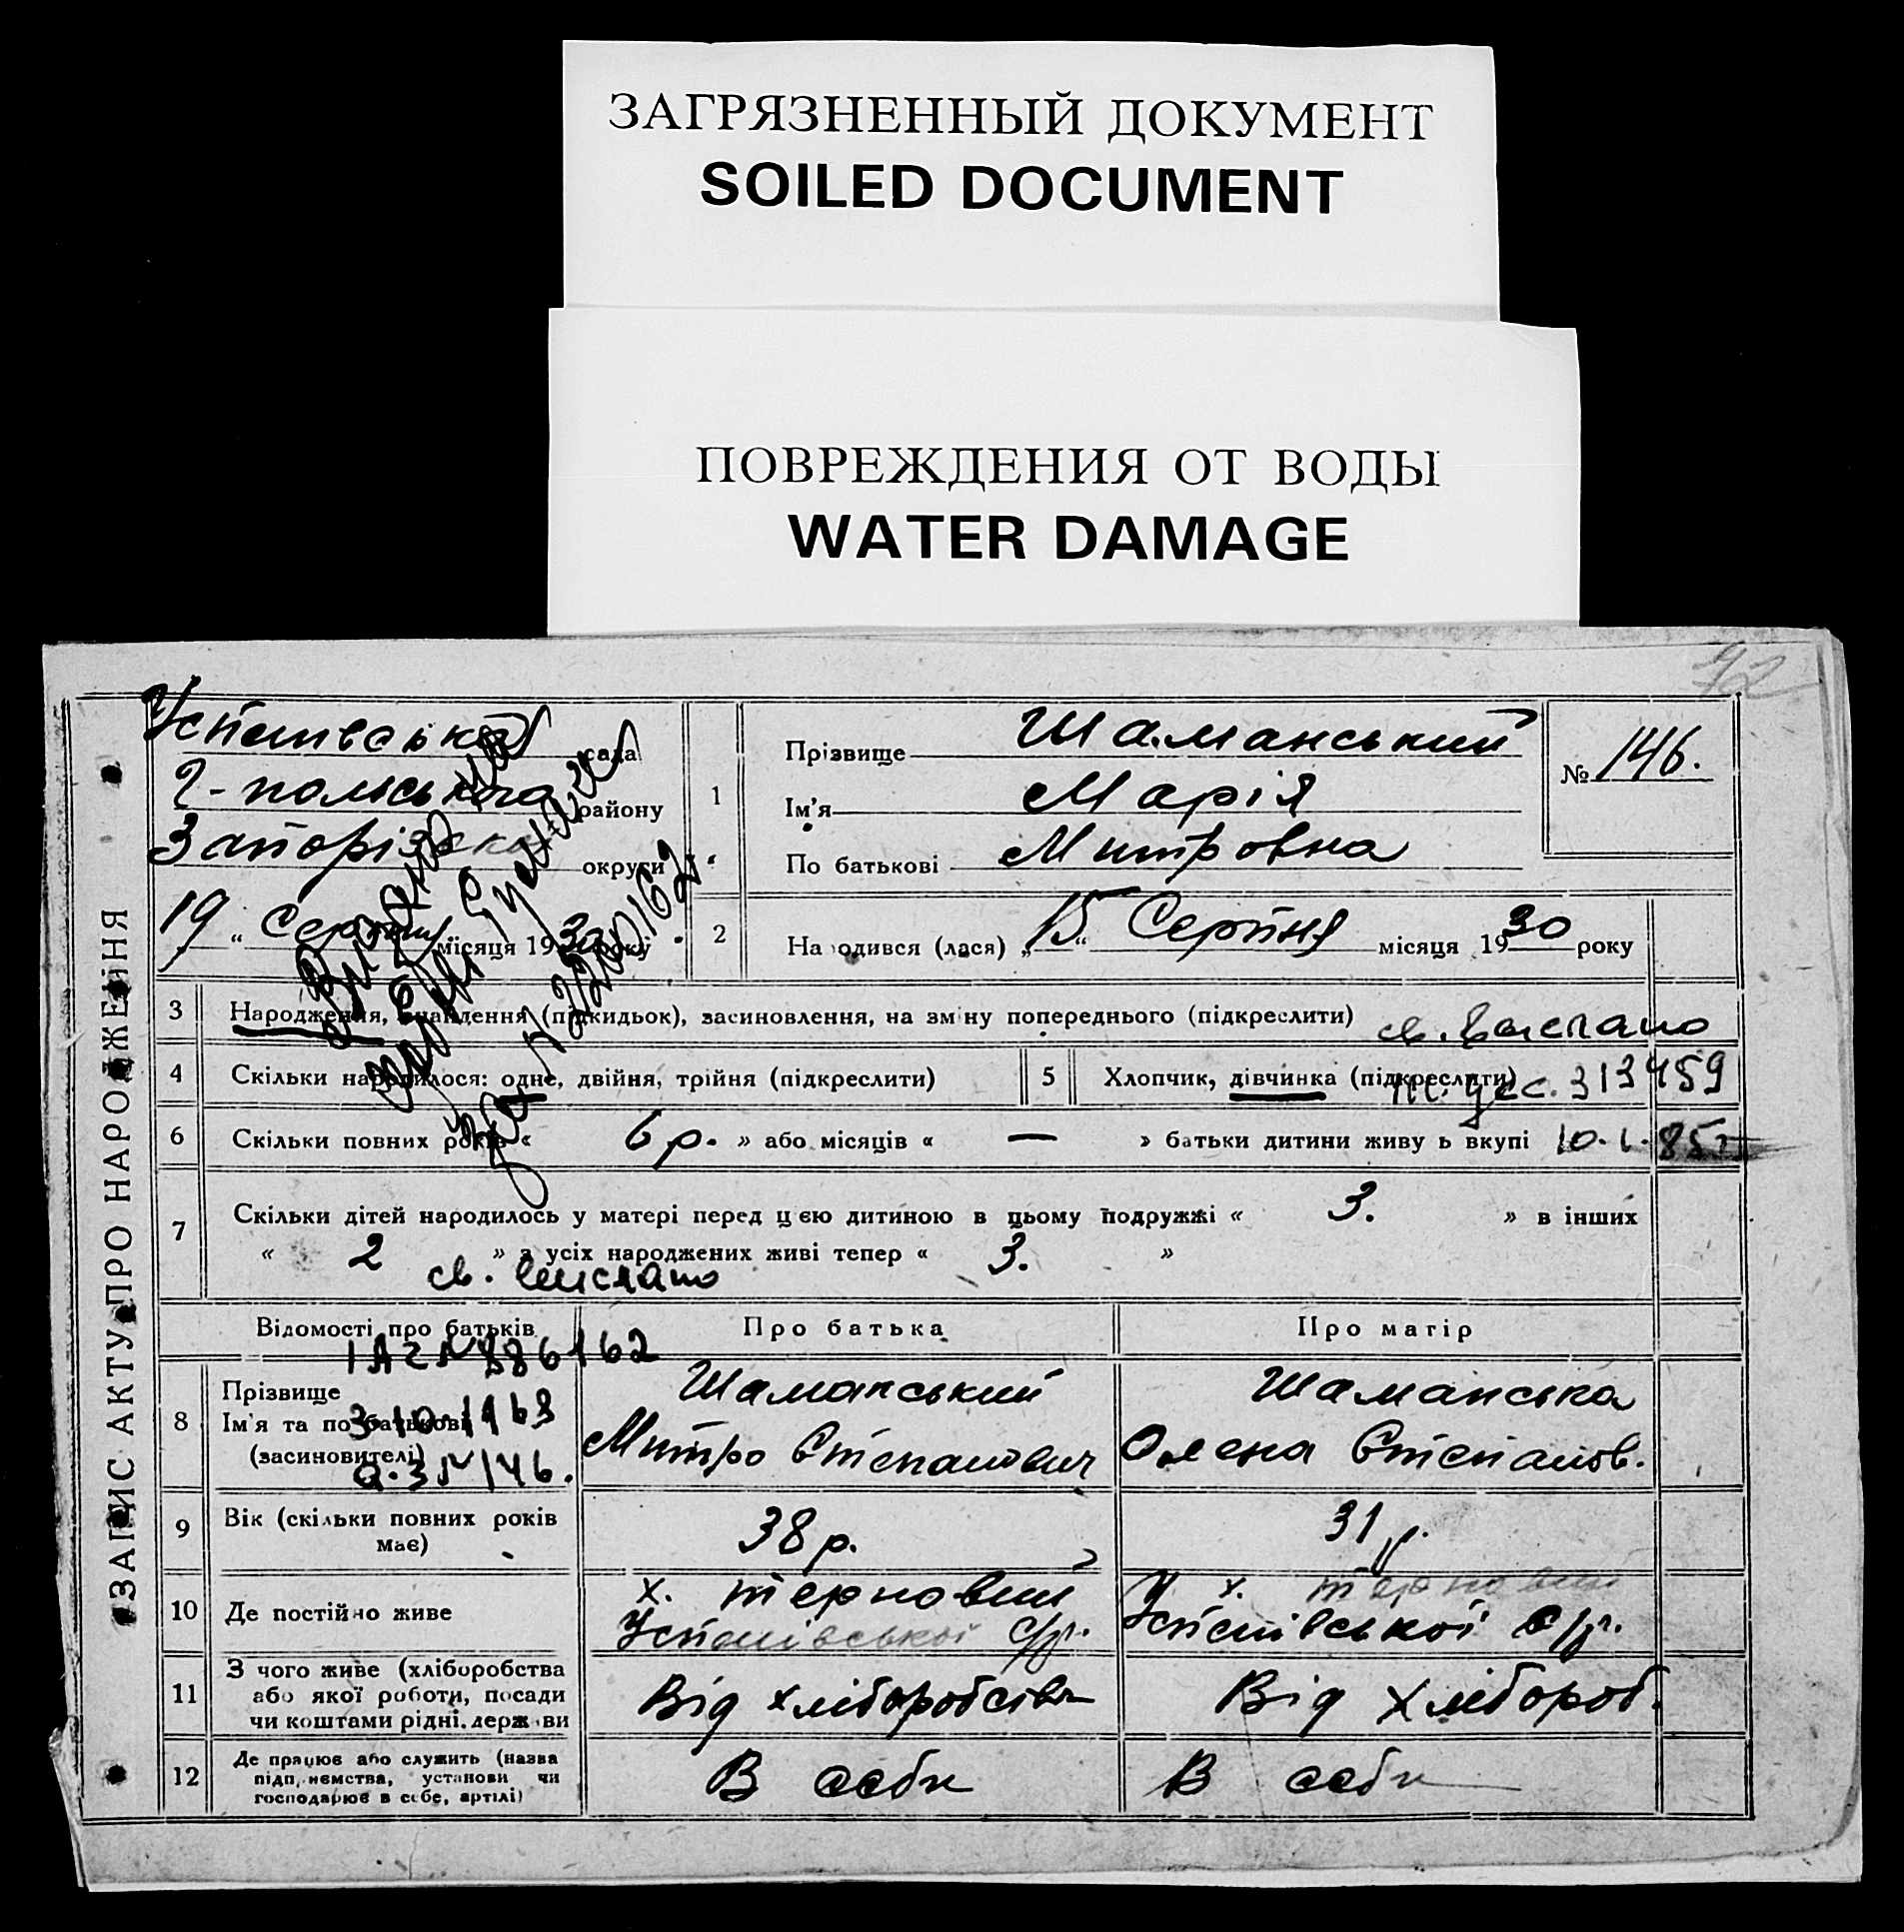 ЗАГРЯЗНЕННЫЙ ДОКУМЕНТ
SOILED DOCUMENT
ПОВРЕЖДЕНИЯ ОТ ВОДЫ
WATER DAMAGE
72
ЗАПИС АКТУ ПРО НАРОДЖЕННЯ
Успенівська рада
Г-польського району
Запорізької округи
19 „ Серпня місяця 1930 року
1
Прізвище Шаманський
Ім'я Марія
По батькові Митровна
№ 146.
2
Народився (лася) „ 15 “ Серпня місяця 1930 року
3 Народження, знайдення (підкидьок), засиновлення, на зміну попереднього (підкреслити)
св. выслано
4 Скільки народилося: одне, двійня, трійня (підкреслити)
5 Хлопчик, дівчинка (підкреслити)
313459
6 Скільки повних років « 6 р. » або місяців « — » батьки дитини живуть вкупі 10.1.85г
7 Скільки дітей народилось у матері перед цією дитиною в цьому подружжі « 3. » в інших
« 2 » з усіх народжених живі тепер « 3. »
св. выслано
Відомості про батьків
Про батька
Про матір
№ 886162
3.10.1963
а.з № 146.
8 Прізвище
Ім'я та по батькові
(засиновителі)
Шаманський
Митро Степанович
Шаманська
Олена Степанов.
9 Вік (скільки повних років
має)
38 р.
31 р.
10 Де постійно живе
х. терновий
Успенівської с/р.
х. терновий
Успенівської с/р.
11 З чого живе (хліборобства
або якої роботи, посади
чи коштами рідні, держави
Від хліборобства
Від хлібороб.
12 Де працює або служить (назва
підприємства, установи чи
господарює в себе, артілі)
В себе
В себе